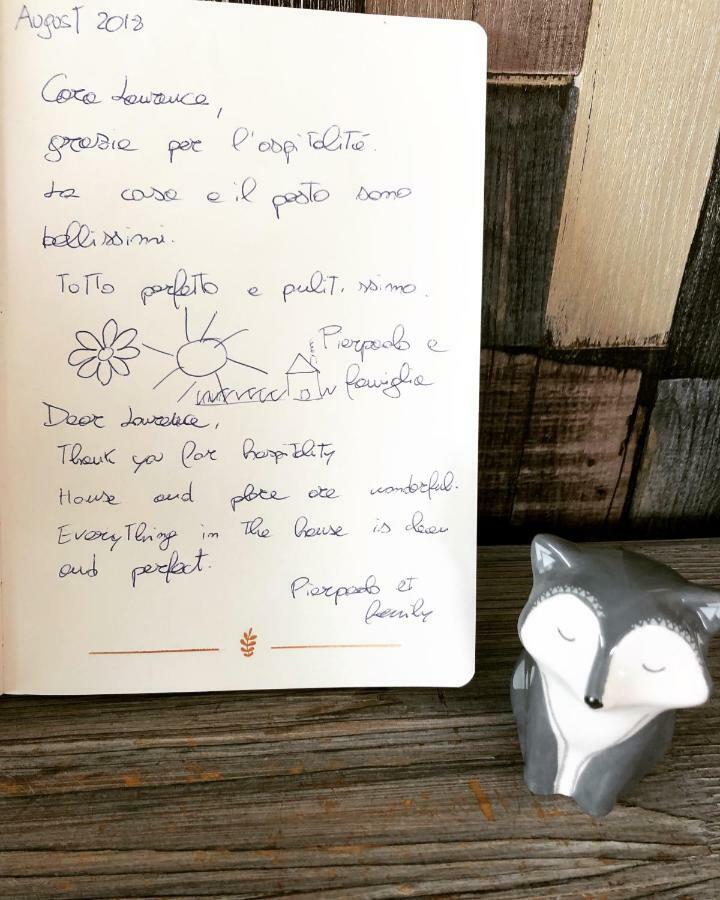 August 2018
Cara Laurence,
grazie per l'ospitalità.
La casa e il posto sono
bellissimi.
Tutto perfetto e pulitissimo.
Pierpaolo e
famiglia
Dear Laurence,
Thank you for hospitality
House and place are wonderful.
Everything in the house is clean
and perfect.
Pierpaolo et
family